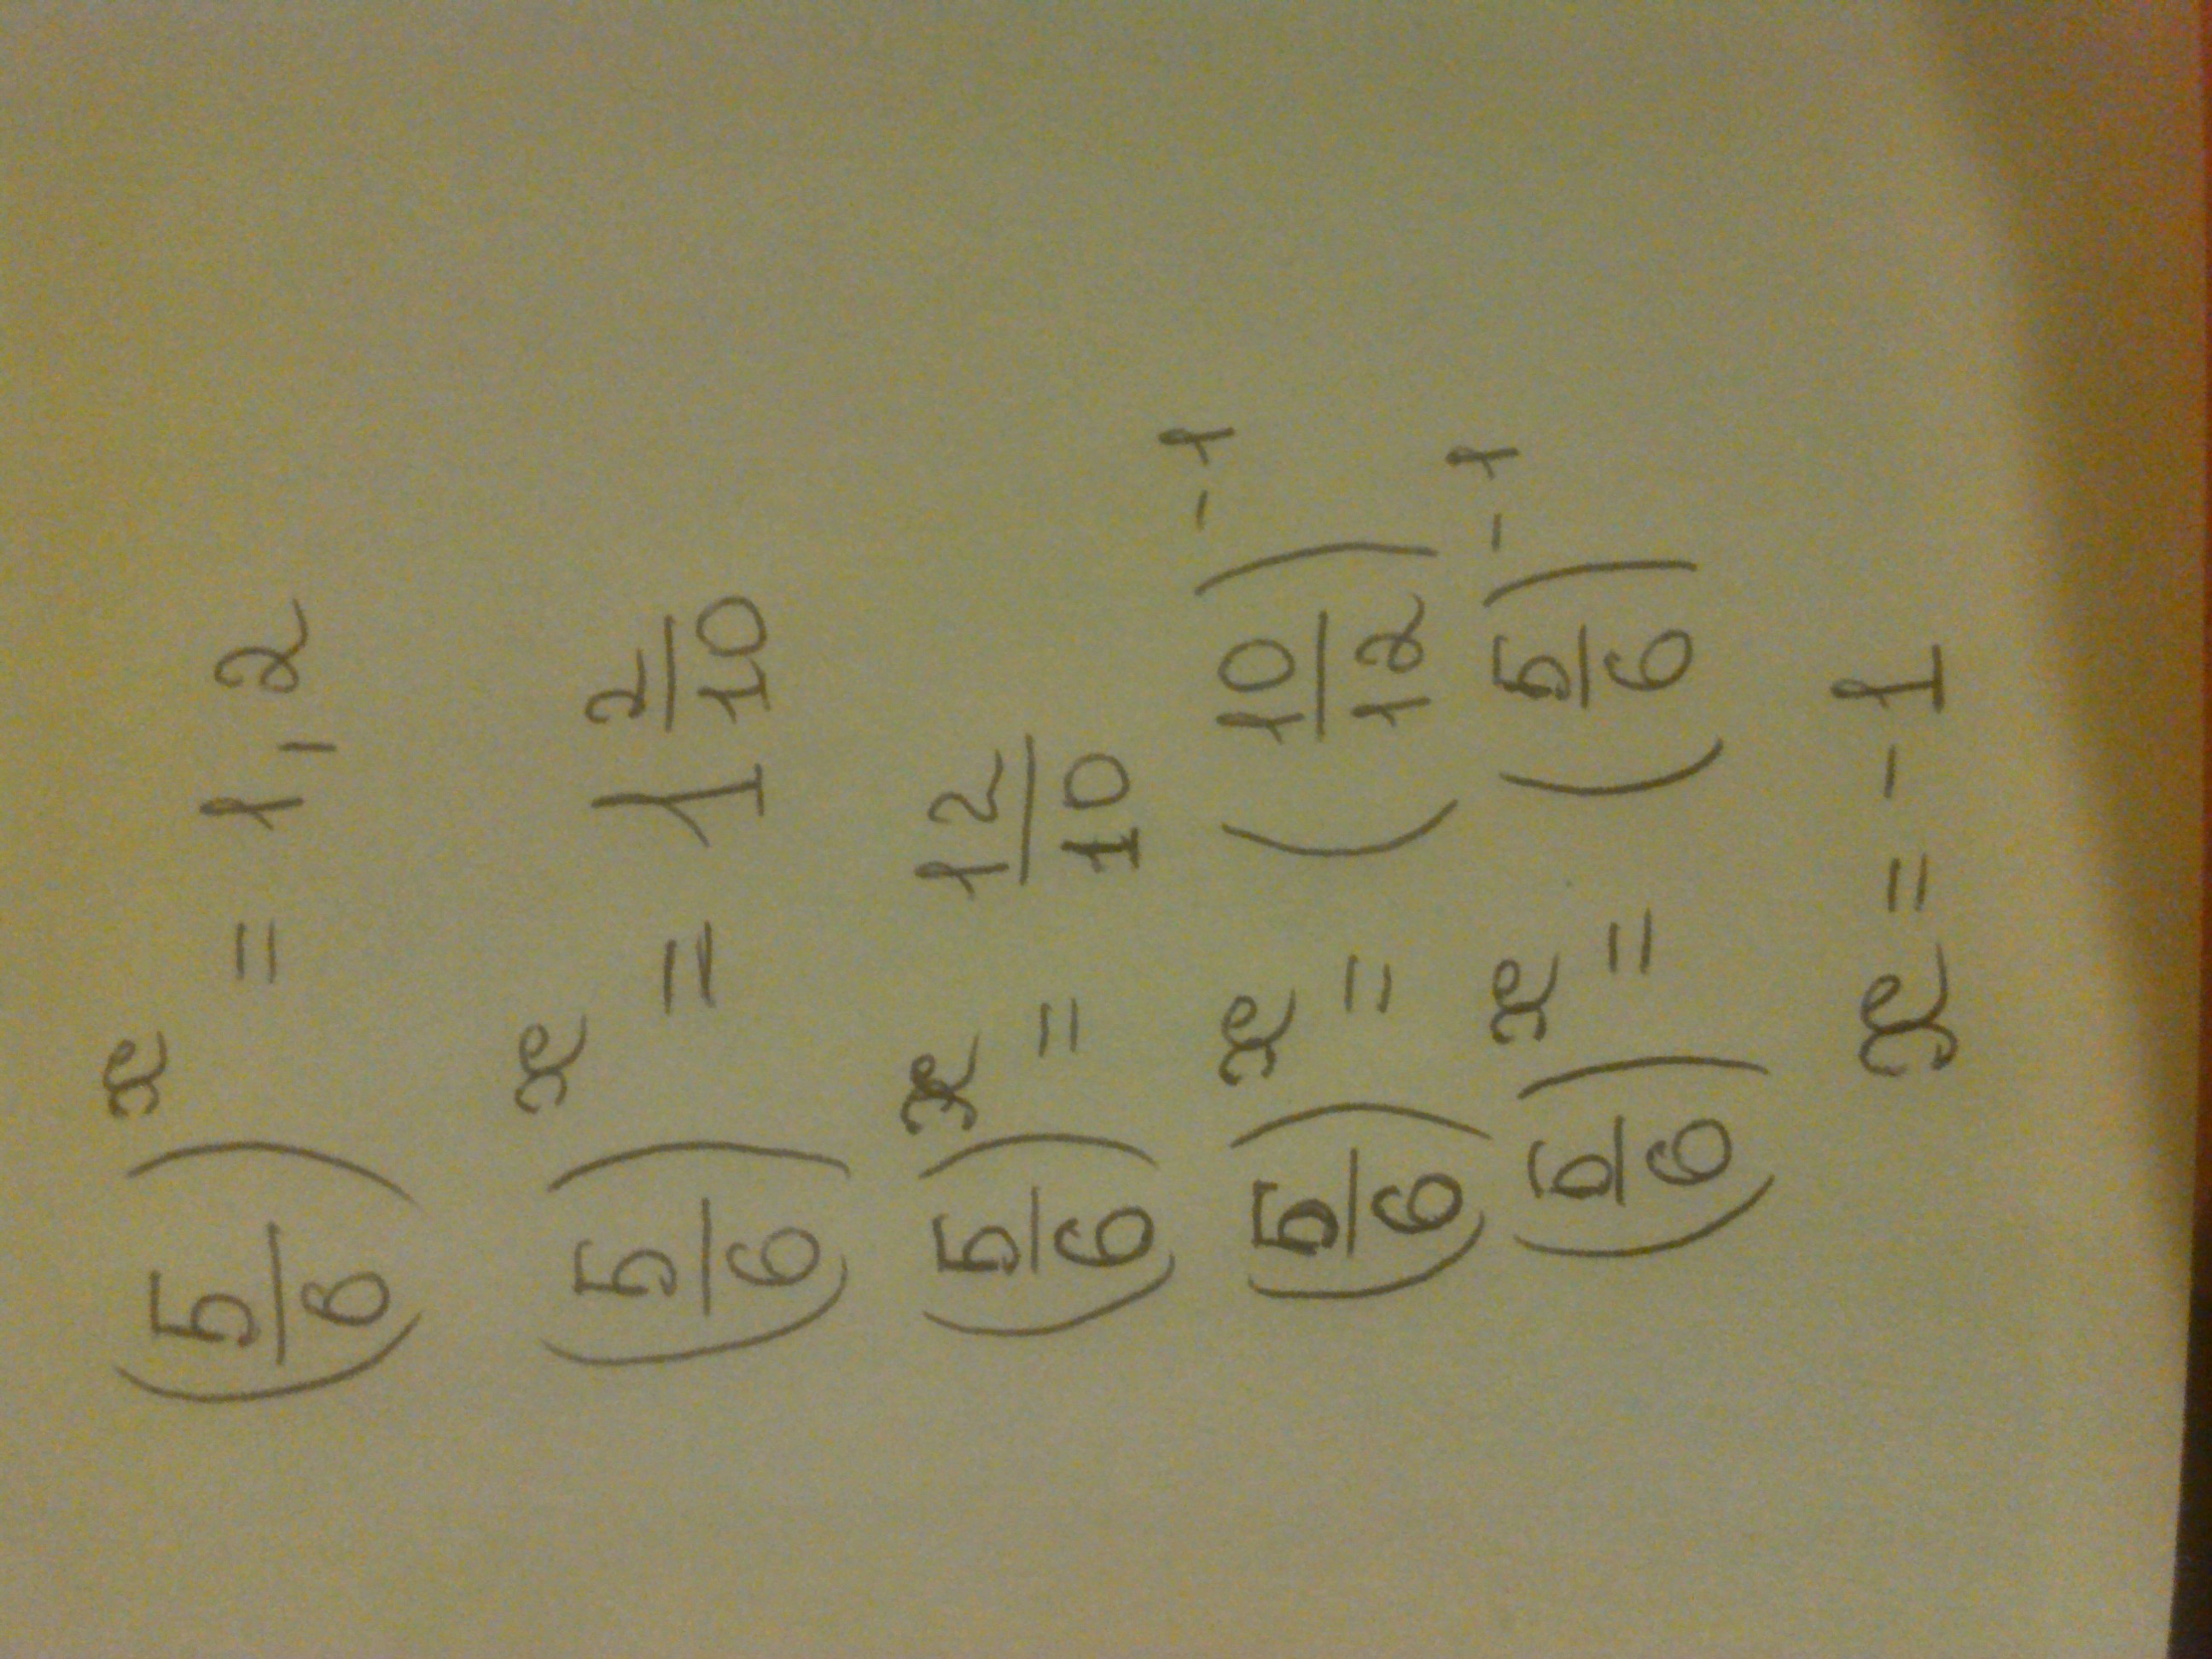 (5/6)^x = 1,2
(5/6)^x = 1 2/10
(5/6)^x = 12/10
(5/6)^x = (10/12)^-1
(5/6)^x = (5/6)^-1
x = -1